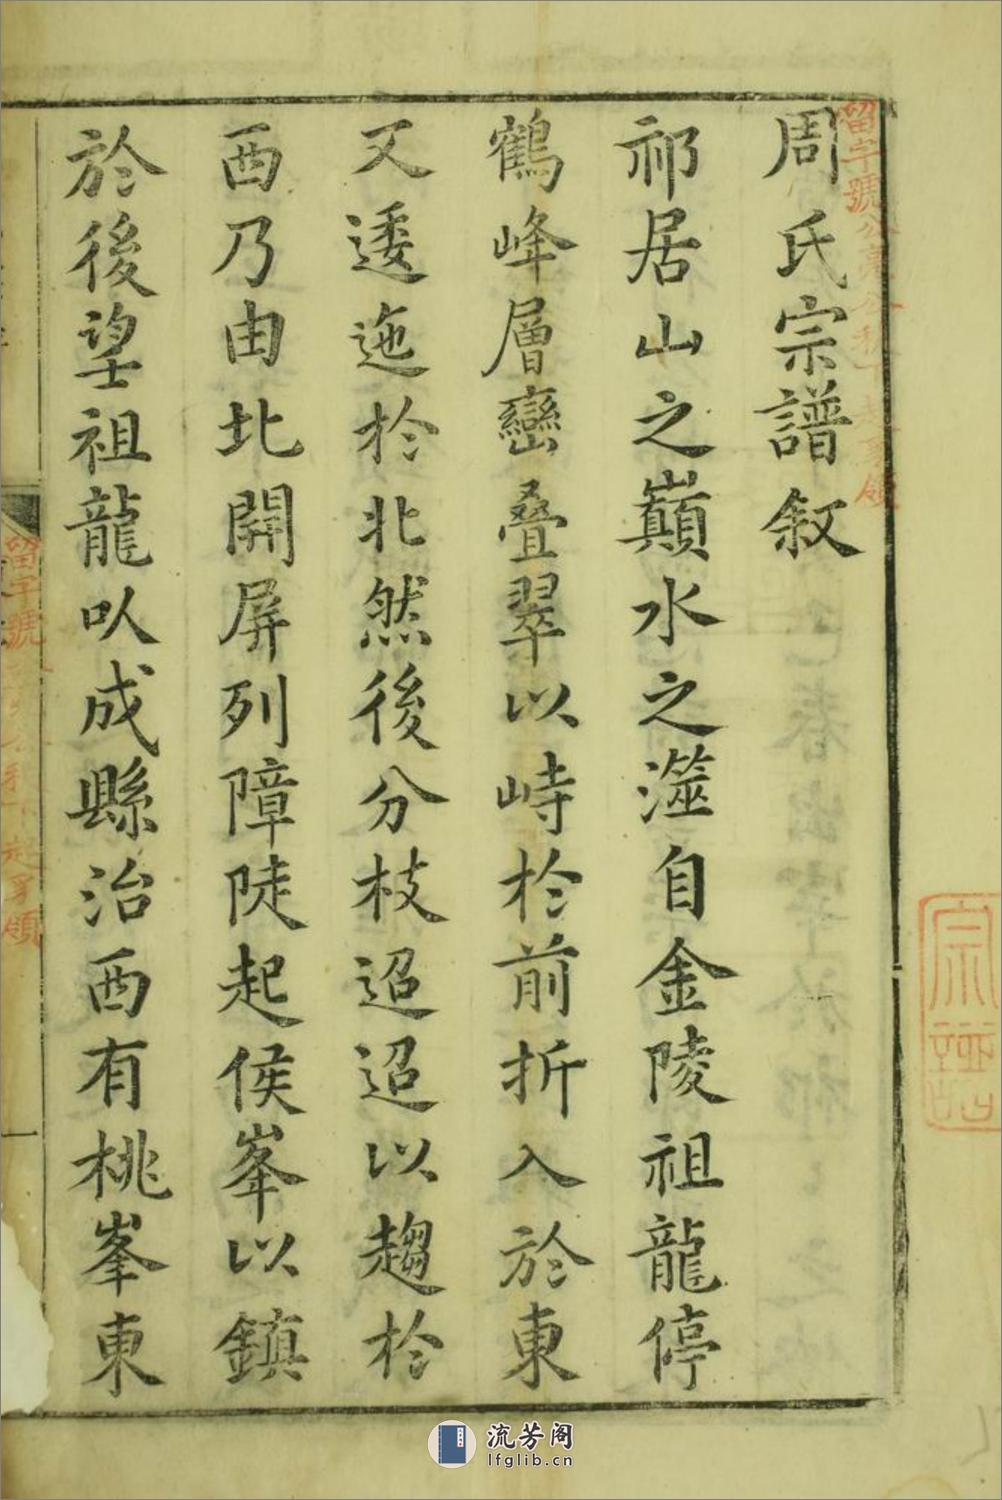 周氏宗譜叙
祁居山之巔水之澨自金陵祖龍停
鶴峰層巒叠翠以峙於前折入於東
又逶迤於北然後分枝迢迢以趨於
西乃由北開屏列障陡起侯峯以鎮
於後望祖龍㕥成縣治西有桃峯東
留字號
領
留字號
領
宗譜
流芳阁
lfglib.cn